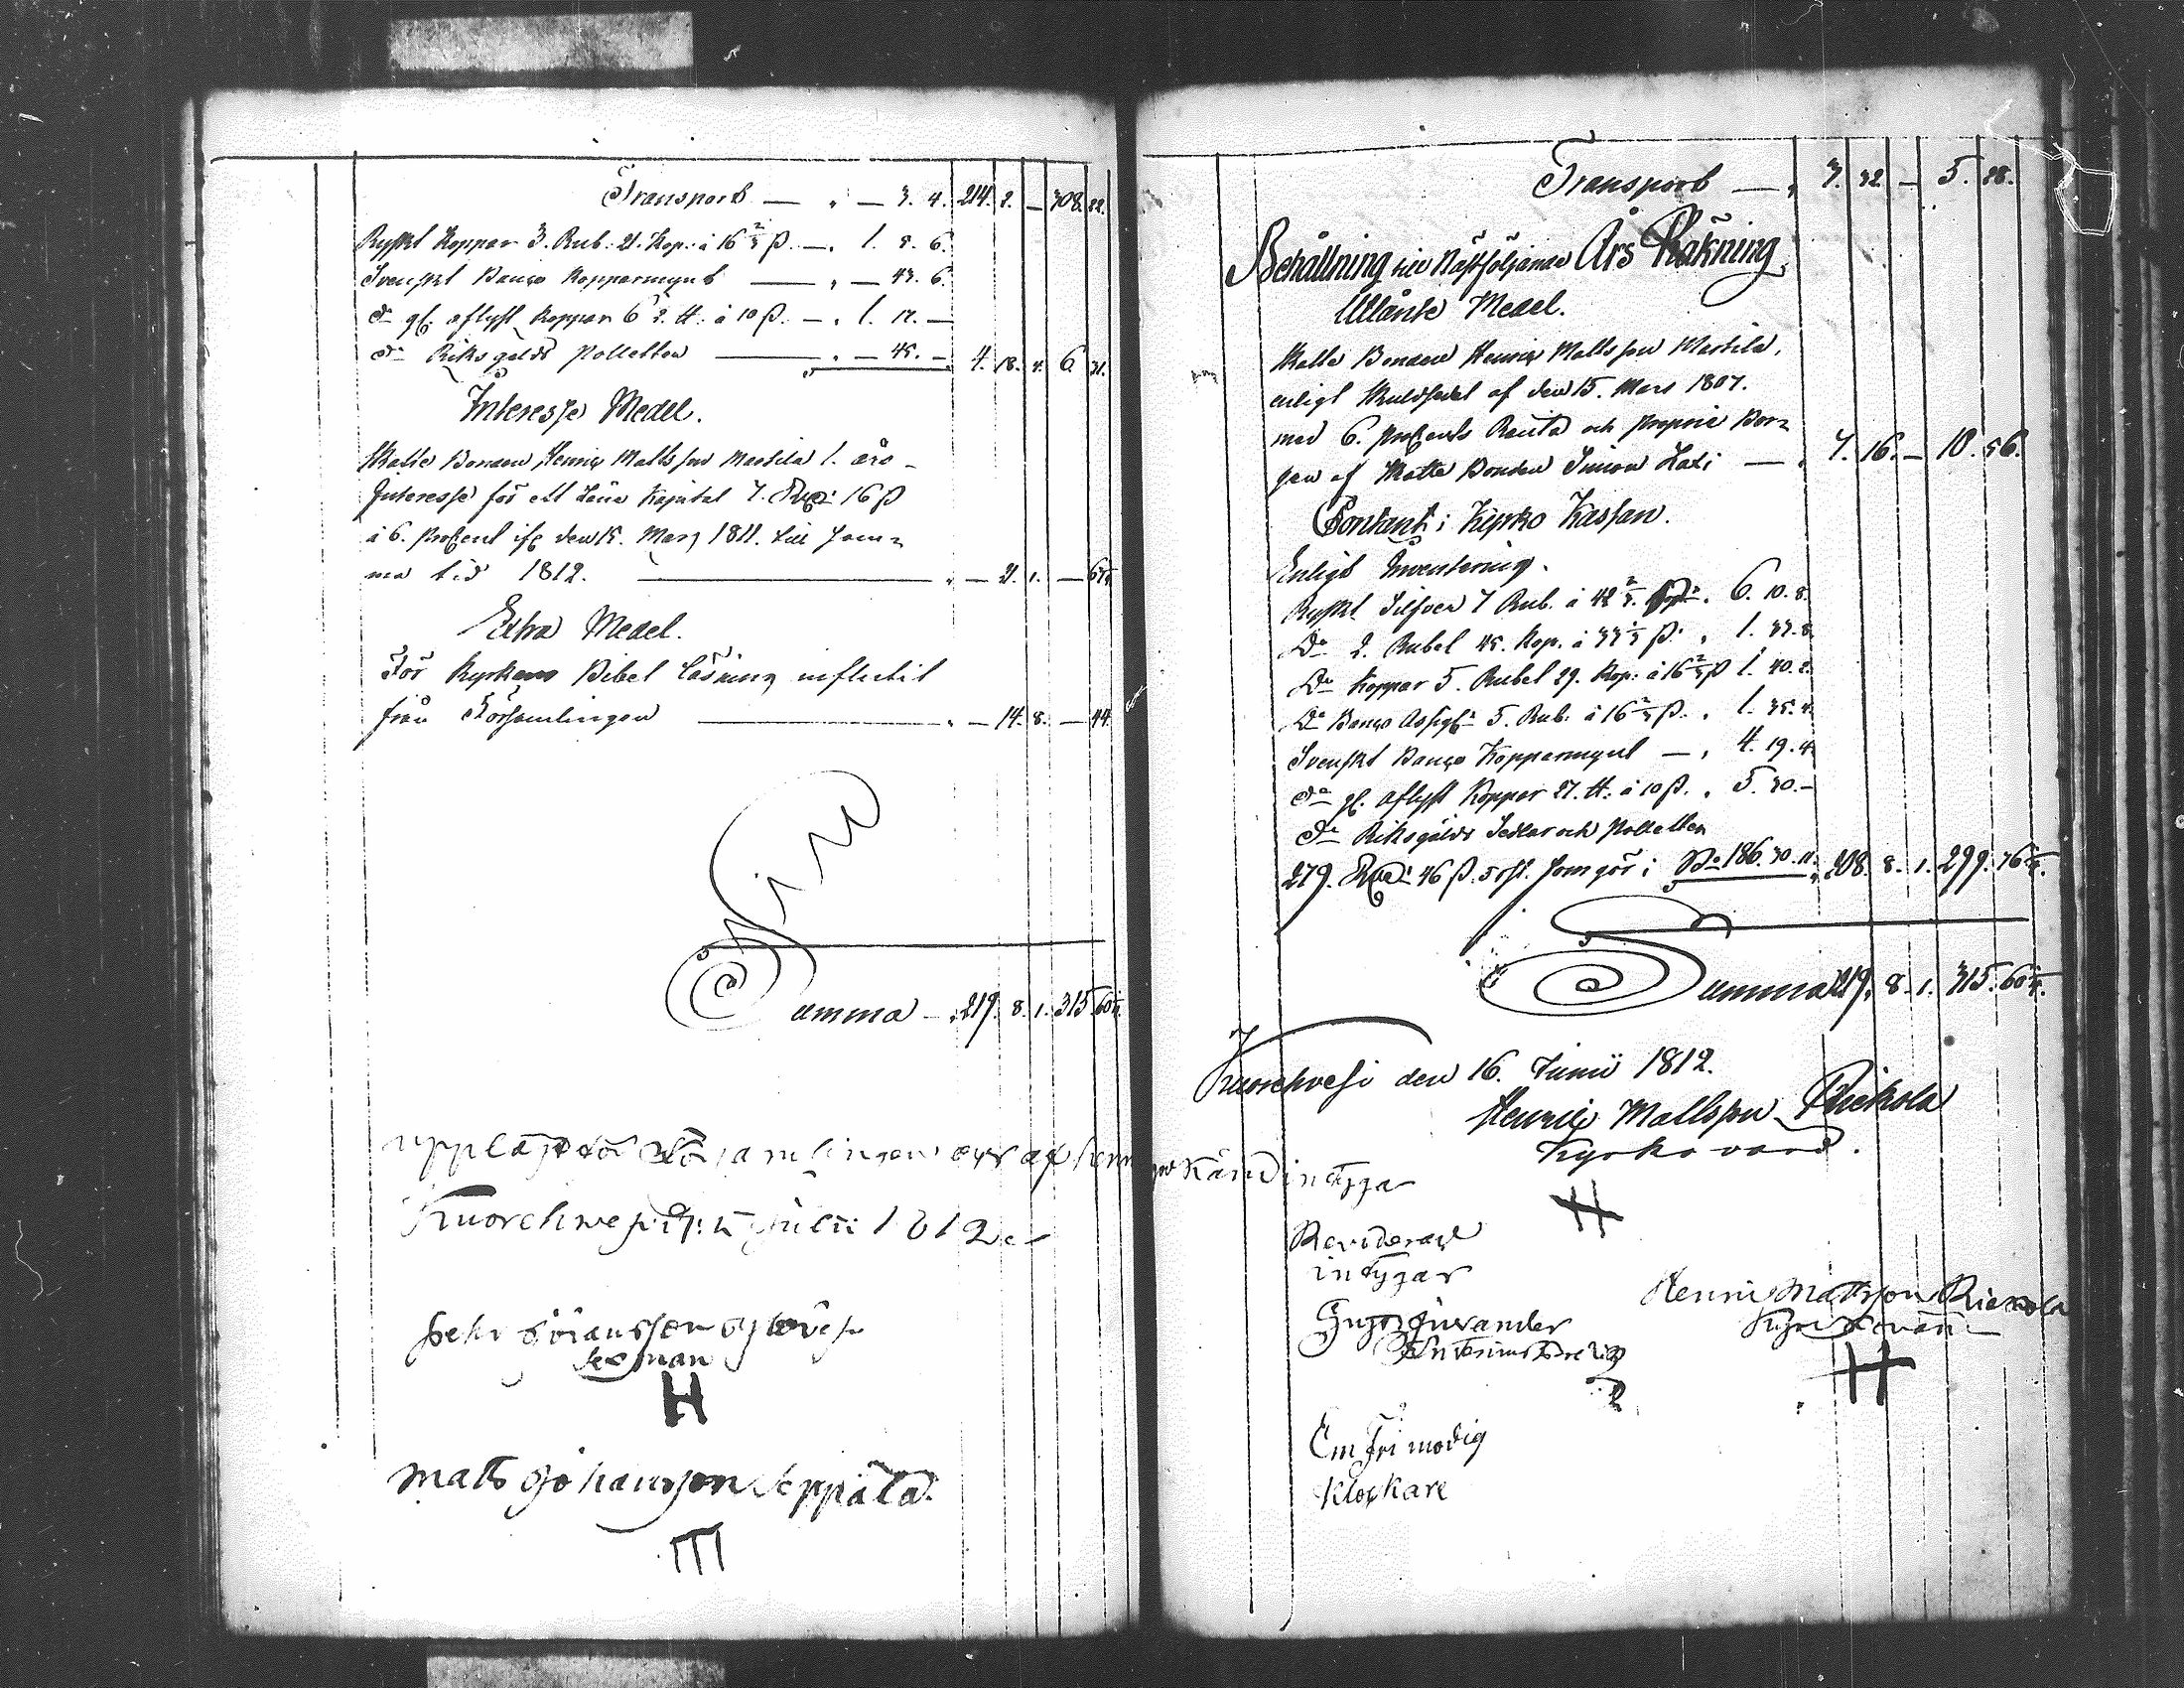 Transport — " — 3. 4. 214. 2. — 308. 22.
Ryskt Koppar 3. Rub. 21. Kop. à 16 2/3 ß. — " 1. 5. 6.
Svenskt Banco Kopparmynt — " — 43. 6.
do gl. aflyst Koppar 6 1/2 ℔. à 10 ß. — " 1. 17. —
do Riksgälds Polletter — " — 45. — 4. 18. 4. 6. 31.
Interesse Medel.
Skatte Bonden Henric Mattsson Marttila 1. års
Interesse för ett Låne Kapital 7. Rd. 16 ß
à 6. procent ifr. den 15. Mars 1811. till sam=
ma tid 1812. — " — 21. 1. — 6
Extra Medel.
För Kyrkans Bibel läsning influtit
från Församlingen — " — 14. 8. — 44.
Summa — " 219. 8. 1. 315. 60
Kuorehwesi d: 5 Julii 1812
sexman
H
Matts Johansson Seppälä.
Transport — " 3. 32. — 5. 28.
Behållning till Nästföljande Års Räkning.
Utlånte Medel.
Skatte Bonden Henric Mattsson Marttila,
enligt skuldsedel af den 15. Mars 1807.
med 6. procents Ränta och proprie Bor=
gen af Skatte Bonden Simon — " 7. 16. — 10. 56.
Contant i Kyrko Kassan.
Enligt Inventering.
Ryskt Silfver 7 Rub. à 42 2/3 " 6. 10. 8.
Do 2. Rubel 45. Kop. à 33 1/3 ß. " 1. 33. 8.
Do Koppar 5. Rubel 29. Kop. à 16 2/3 ß 1. 40. 2.
Do Banco Assign. 5. Rub. à 16 2/3 ß. " 1. 35. 4.
Svenskt Banco Kopparmynt — " 4. 19. 4.
do gl. aflyst Koppar 27. ℔. à 10 ß. " 5. 30. —
do Riksgälds Sedlar och Polletter
279. Rd. 46 ß. 5 rst. som gör i Bo 186. 30. 11. 208. 8. 1. 299. 76
Summa 219. 8. 1. 315. 60
Kuorehvesi den 16. Junii 1812.
Henric Mattsson Riekola
Kyrkovärd.
H
Revideradt
intygar
Henric Mattsson Riekola
H
Em Frimodig
Klockare